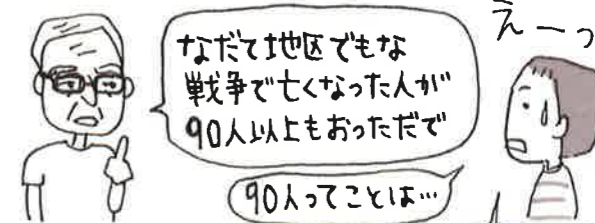 なだて地区でもな
戦争で亡くなった人が
90人以上もおっただで
えーっ
90人ってことは…